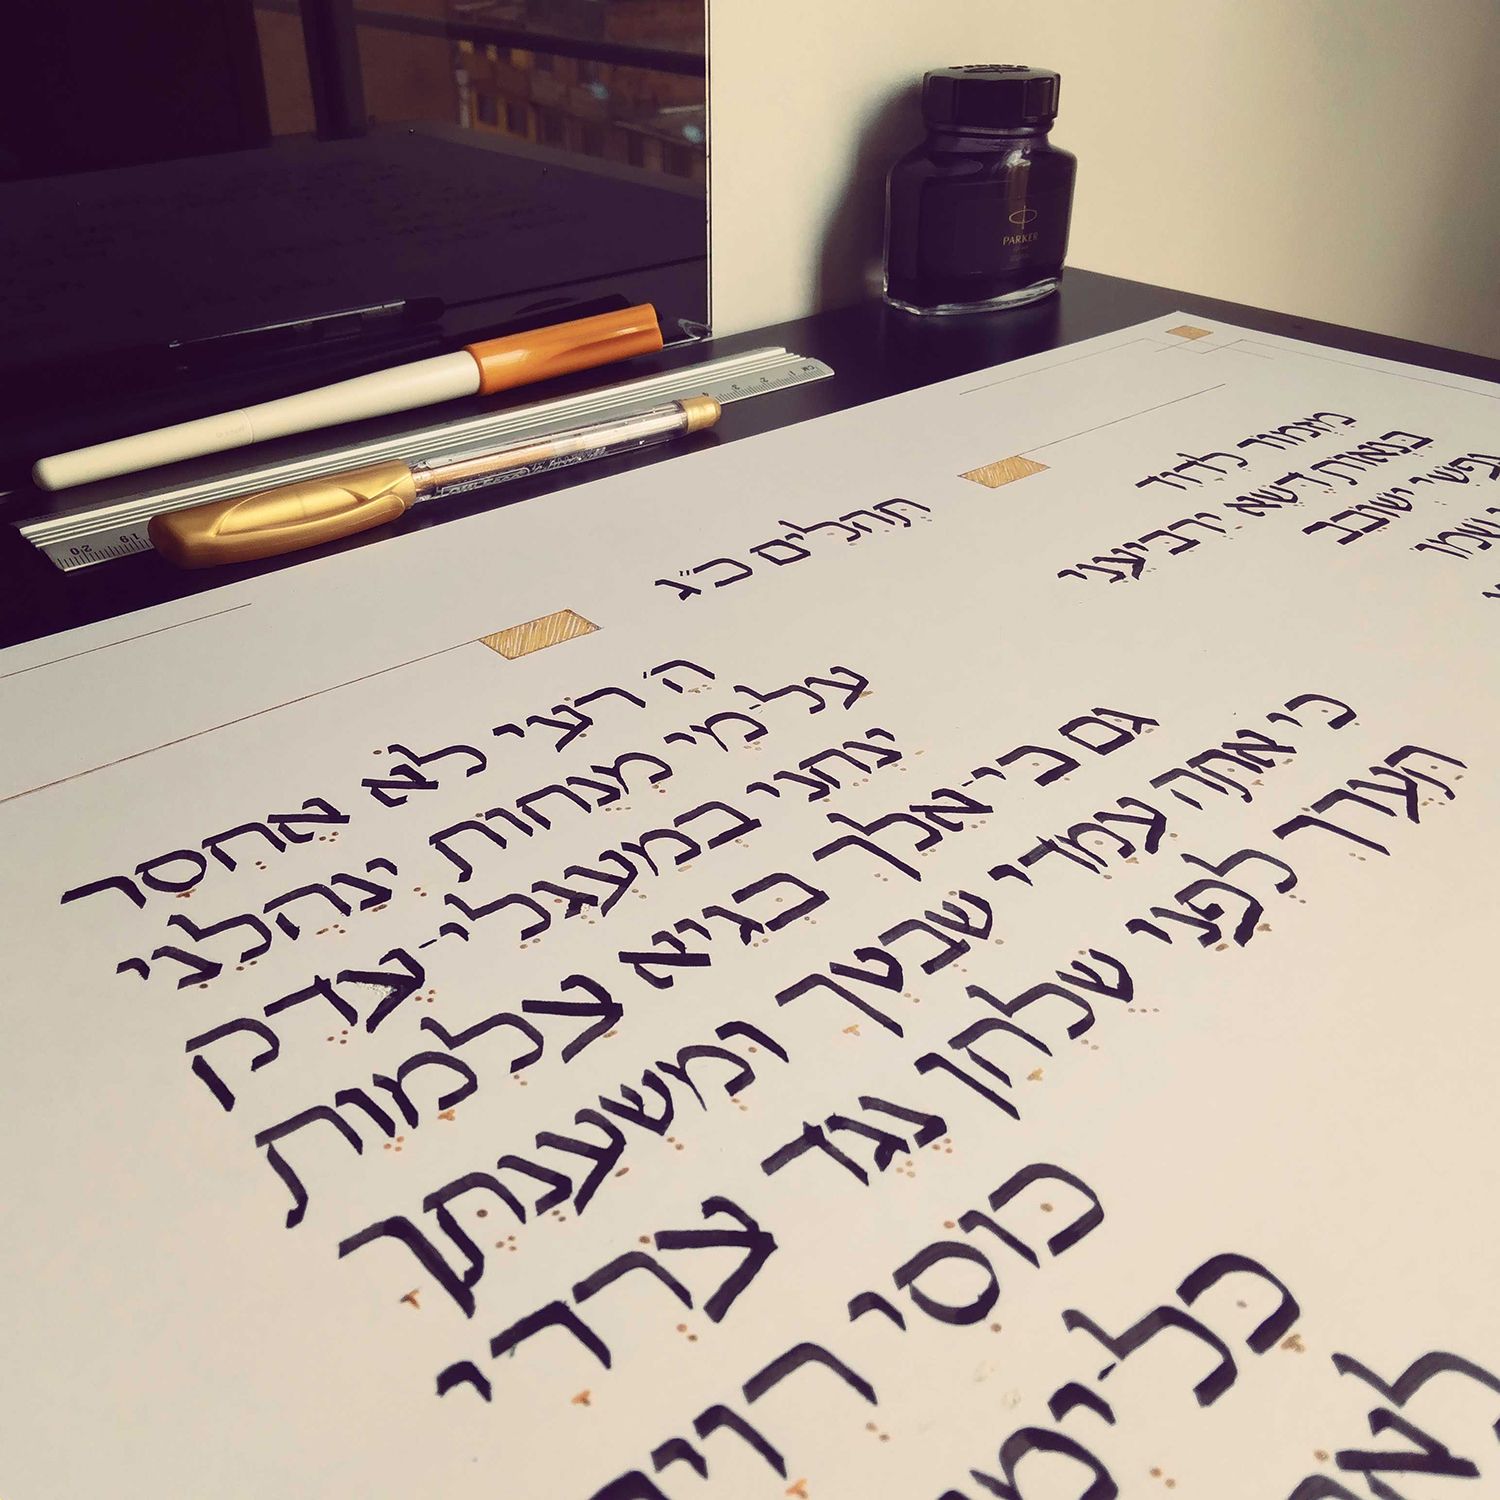 PARKER
CM 1 2 3 4
19 20
תהלים כ״ג
מזמור לדוד ה׳ רעי לא אחסר
בנאות דשא ירביצני על־מי מנחות ינהלני
נפשי ישובב ינחני במעגלי־צדק
שמו גם כי־אלך בגיא צלמות
כי אתה עמדי שבטך ומשענתך
תערך לפני שלחן נגד צררי
כוסי